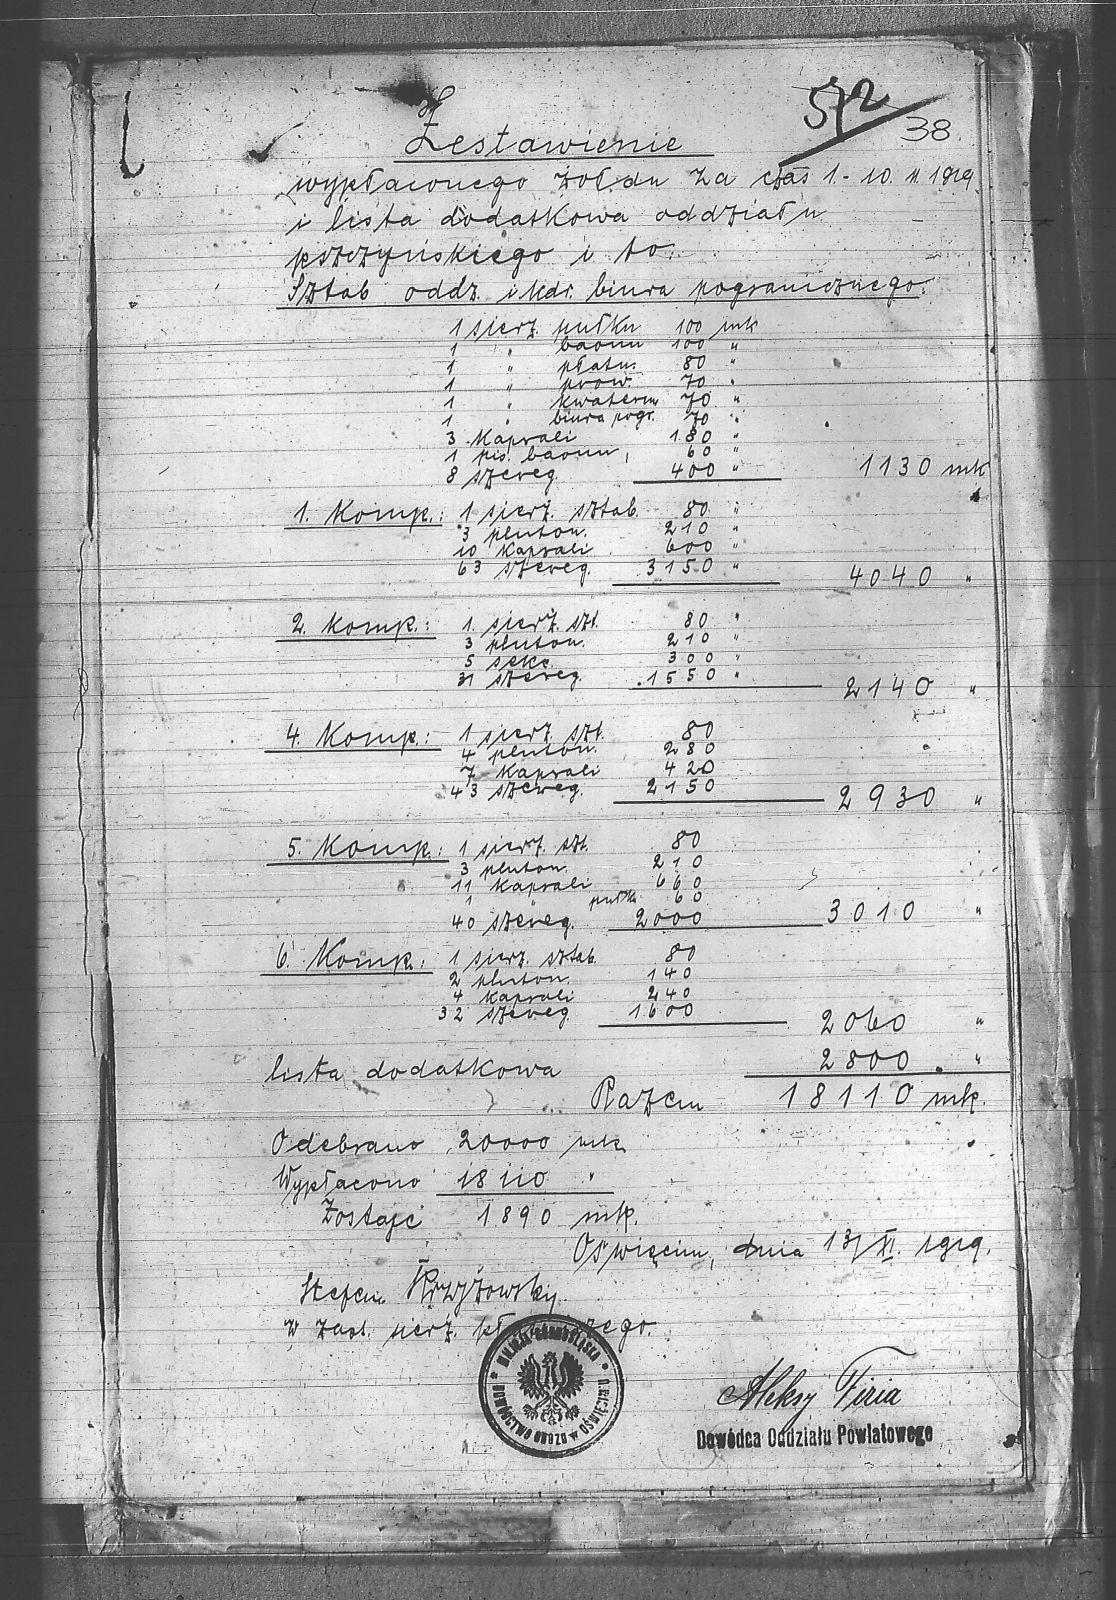 572
38
Zestawienie
wypłaconego żołdu za czas 1-10. 11. 1919.
i lista dodatkowa oddziału
pszczyńskiego i to:
Sztab oddz. i kdr. biura pogranicznego.
1 sierż. pułku 100 mk
1 " baonu 100 "
1 " płatn. 80 "
1 " prow. 70 "
1 " kwaterm. 70 "
1 " biura pogr. 70 "
3 Kaprali 180 "
1 pis. baonu 60 "
8 szereg. 400 " 1130 mk
1. Komp.: 1 sierż. sztab. 80 "
3 pluton. 210 "
10 Kaprali 600 "
63 szereg. 3150 " 4040 "
2. Komp.: 1. sierż. szt. 80 "
3 pluton. 210 "
5 sekc. 300 "
31 szereg. 1550 " 2140 "
4. Komp.: 1 sierż. szt. 80
4 pluton. 280
7 Kaprali 420
43 szereg. 2150 2930 "
5. Komp.: 1 sierż. szt. 80
3 pluton. 210
11 Kaprali 660
1 " pułk. 60
40 szereg. 2000 3010 "
6. Komp.: 1 sierż. sztab. 80
2 pluton. 140
4 Kaprali 240
32 szereg. 1600 2060 "
lista dodatkowa 2800 "
Razem 18110 mk.
Odebrano 20000 mk
Wypłacono 18110 "
Zostaje 1890 mk.
Oświęcim, dnia 13/XI. 1919.
Stefan Krzyżowsky
w zast. sierż. pł
zego.
MILICJA GÓRNOŚLĄSKA * DOWÓDZTWO OBOZU W OŚWIĘCIMIU *
Aleksy Firia
Dowódca Oddziału Powiatowego